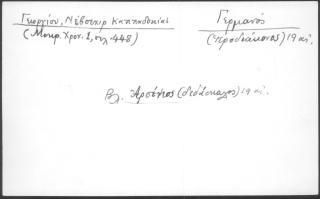 Γεωργίου, Νέβσεχιρ Καππαδοκίας
(Μικρ. Χρον. 1, σελ. 448)
Γερμανός
(ἱεροδιάκονος) 19 αἰ.
Βλ. Ἀρσένιος (διδάσκαλος) 19 αἰ.